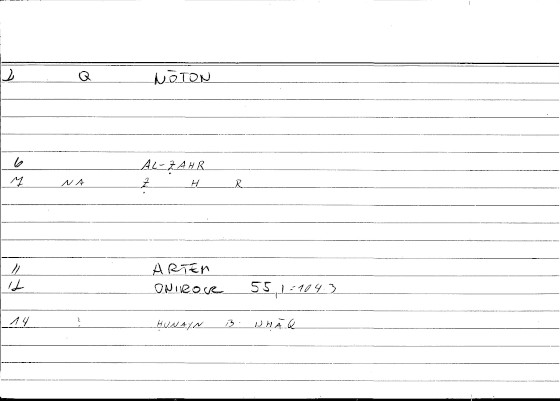 2 Q NŌTON
6 AL-ẒAHR
7 NA Ẓ H R
11 ARTEM
12 ONIROCR 55,1=104.3
14 ! ḤUNAYN B.